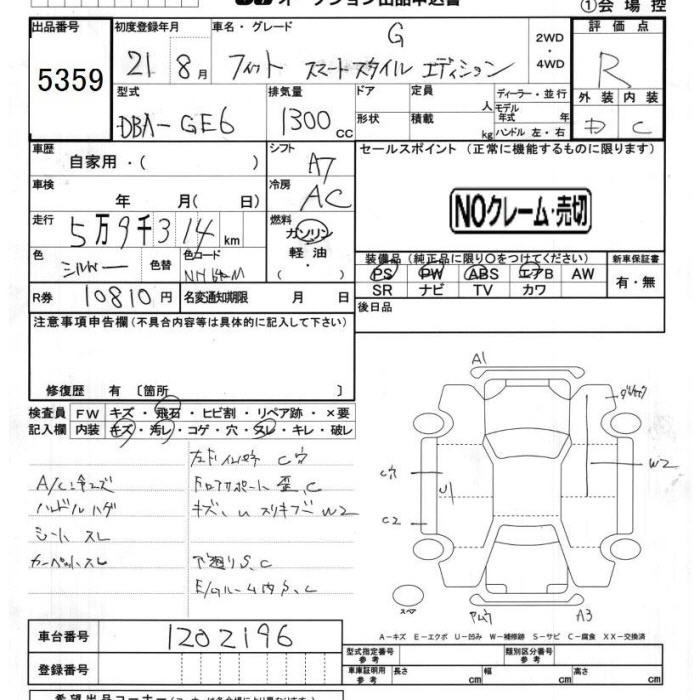 オークション出品申込書
①会場控
出品番号
5359
初度登録年月
21 8月
車名・グレード
G
フィット スマートスタイル エディション
2WD
・
4WD
評価点
R
外装 内装
D C
型式
DBA-GE6
排気量
1300cc
ドア
定員
人
形状
積載
kg
ディーラー・並行
モデル年式 年
ハンドル 左・右
車歴
自家用・( )
シフト
A7
セールスポイント (正常に機能するものに限ります)
NOクレーム・売切
車検
年 月( 日)
冷房
AC
走行
5万9千314km
燃料
ガソリン
軽油
・( )
色
シルバー
色替
色コード
装備品 (純正品に限り〇をつけてください)
PS PW ABS エアB AW
SR ナビ TV カワ
新車保証書
有・無
R券
10810円
名変通知期限 月 日
後日品
注意事項申告欄(不具合内容等は具体的に記入して下さい)
修復歴 有 〔箇所 〕
検査員
記入欄
FW キズ・飛石・ヒビ割・リペア跡・×要
内装 キズ・汚レ・コゲ・穴・スレ・キレ・破レ
C穴
A/C冷えズ
ドロアサポート 歪、C
ハンドルハゲ
キズ、U スリキズ W2
シート スレ
カーペットスレ
下廻りS、C
E/Gルーム内S、C
A1
W2
C穴
U1
C2
スペア
A3
A-キズ E-エクボ U-凹み W-補修跡 S-サビ C-腐食 XX-交換済
車台番号
1202196
登録番号
型式指定番号
参考
類別区分番号
参考
車庫証明用
参考
長さ cm
幅 cm
高さ cm
希望出品コーナー